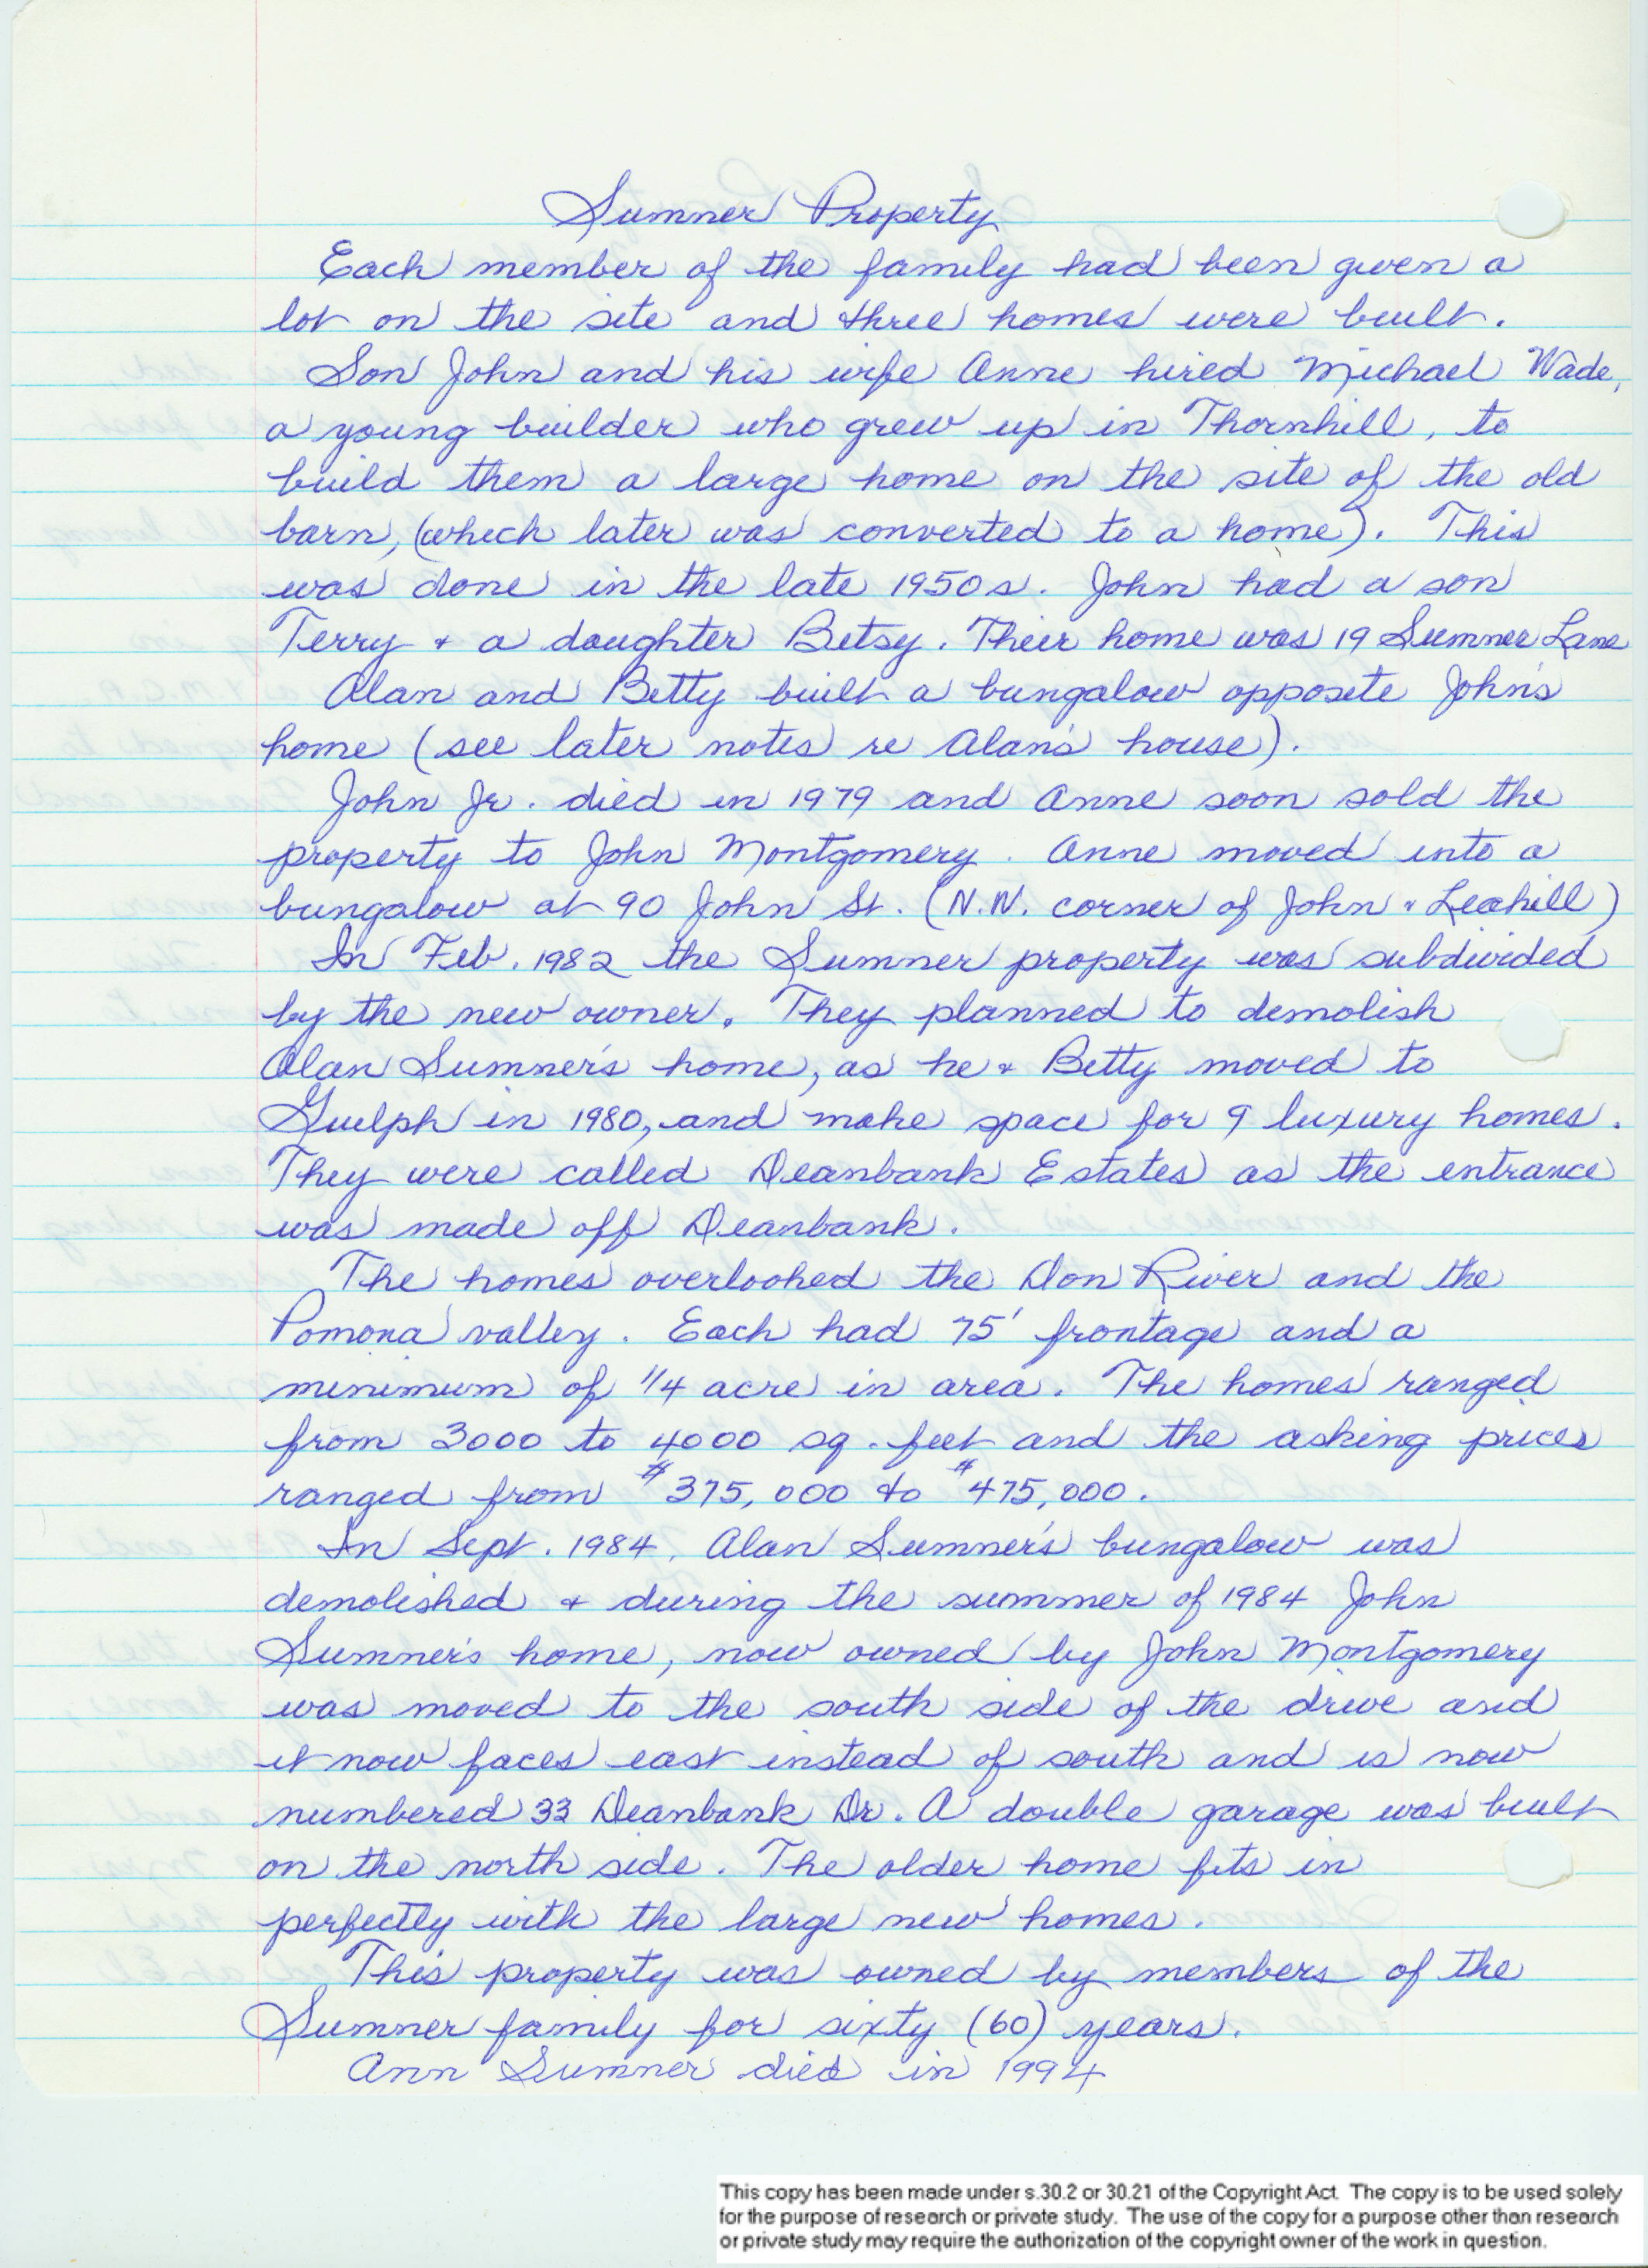 Sumner Property
Each member of the family had been given a
lot on the site and three homes were built.
Son John and his wife Anne hired Michael Wade,
a young builder who grew up in Thornhill, to
build them a large home on the site of the old
barn, (which later was converted to a home). This
was done in the late 1950s. John had a son
Terry + a daughter Betsy. Their home was 19 Sumner Lane
Alan and Betty built a bungalow opposite John's
home (see later notes re Alan's house).
John Jr. died in 1979 and Anne soon sold the
property to John Montgomery. Anne moved into a
bungalow at 90 John St. (N.W. corner of John + Leahill)
In Feb. 1982 the Sumner property was subdivided
by the new owner. They planned to demolish
Alan Sumner's home, as he + Betty moved to
Guelph in 1980, and make space for 9 luxury homes.
They were called Deanbank Estates as the entrance
was made off Deanbank.
The homes overlooked the Don River and the
Pomona valley. Each had 75' frontage and a
minimum of 1/4 acre in area. The homes ranged
from 3000 to 4000 sq. feet and the asking prices
ranged from $375,000 to $475,000.
In Sept. 1984, Alan Sumner's bungalow was
demolished + during the summer of 1984 John
Sumner's home, now owned by John Montgomery
was moved to the south side of the drive and
it now faces east instead of south and is now
numbered 33 Deanbank Dr. A double garage was built
on the north side. The older home fits in
perfectly with the large new homes.
This property was owned by members of the
Sumner family for sixty (60) years.
Ann Sumner died in 1994
This copy has been made under s.30.2 or 30.21 of the Copyright Act. The copy is to be used solely
for the purpose of research or private study. The use of the copy for a purpose other than research
or private study may require the authorization of the copyright owner of the work in question.